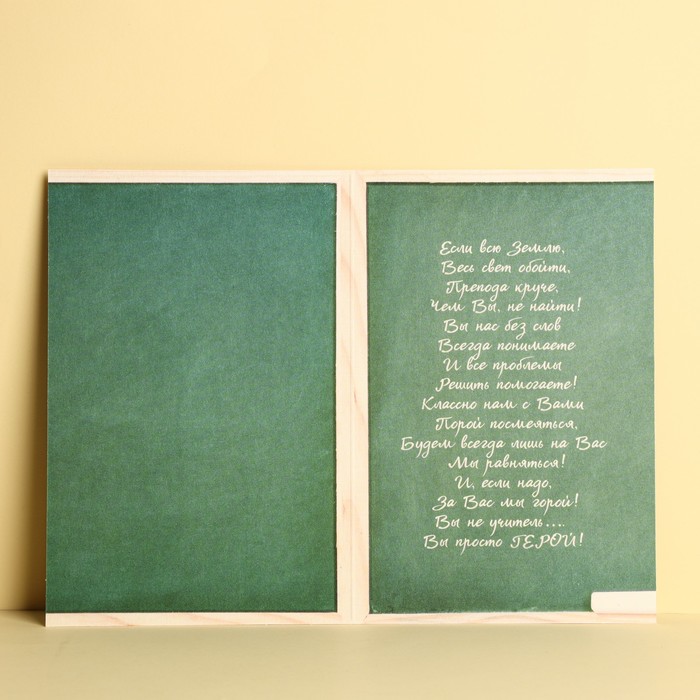 Если всю Землю,
Весь свет обойти,
Препода круче,
Чем Вы, не найти!
Вы нас без слов
Всегда понимаете
И все проблемы
Решить помогаете!
Классно нам с Вами
Порой посмеяться,
Будем всегда лишь на Вас
Мы равняться!
И, если надо,
За Вас мы горой!
Вы не учитель....
Вы просто ГЕРОЙ!